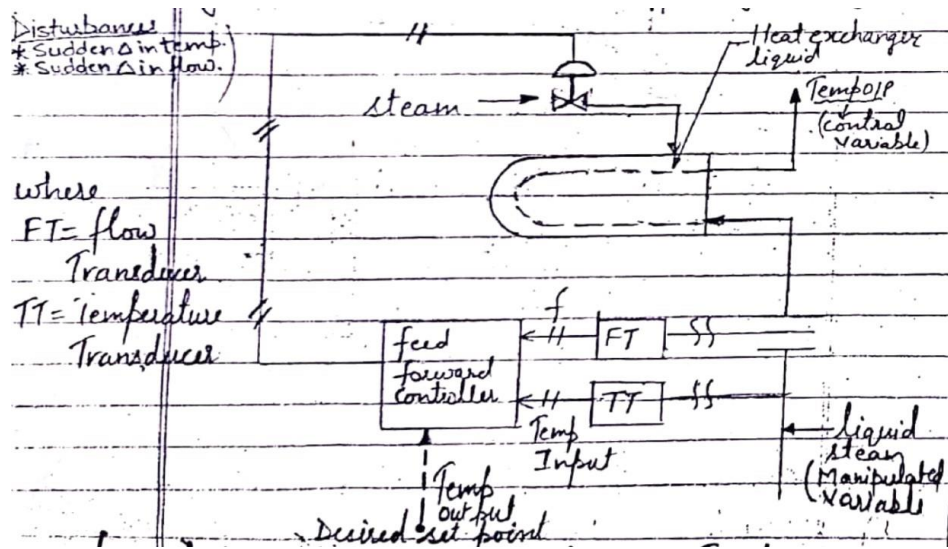 Disturbances
* Sudden Δ in temp.
* Sudden Δ in flow.
Heat exchanger
liquid
steam
Temp O/P
(control
variable)
where
FT = flow
Transducer
TT = Temperature
Transducer
f
feed
forward
controller
FT
TT
Temp
Input
liquid
steam
(Manipulated
variable
Temp
output
Desired set point